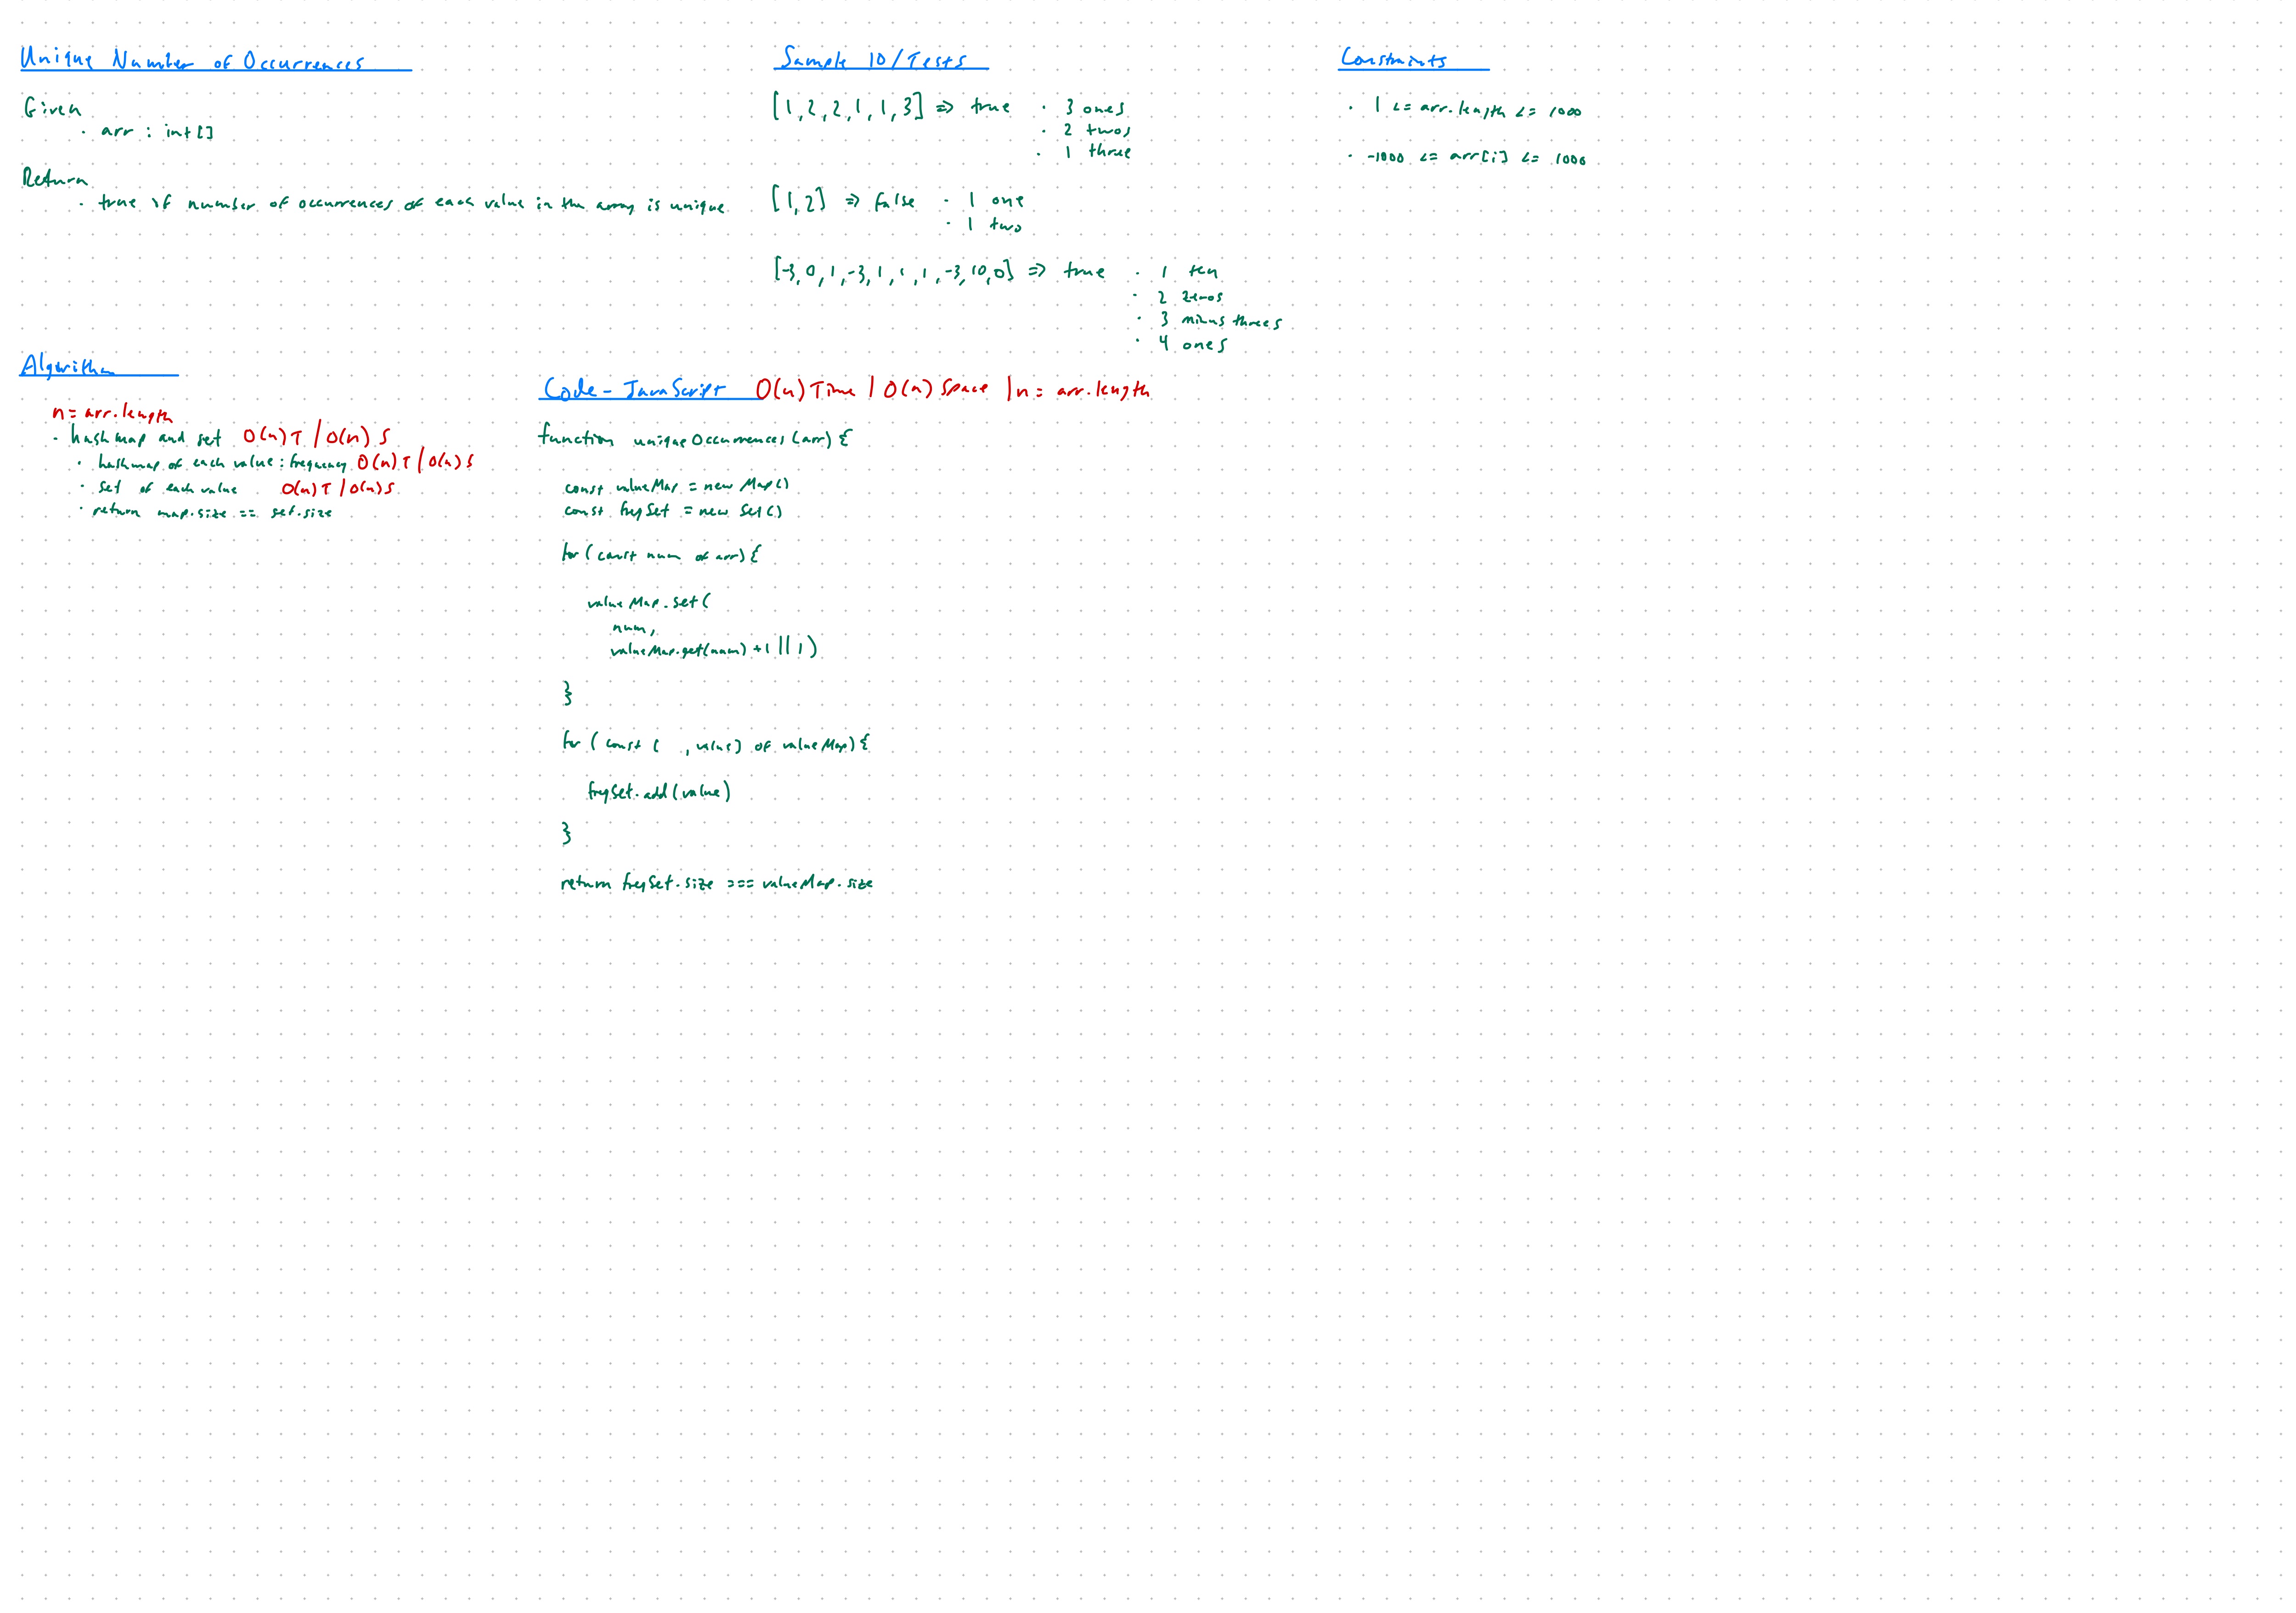 Unique Number of Occurrences
Given
· arr : int[]
Return
· true if number of occurrences of each value in the array is unique
Sample IO/Tests
[1,2,2,1,1,3] => true · 3 ones
· 2 twos
· 1 three
[1,2] => false · 1 one
· 1 two
[-3,0,1,-3,1,1,1,-3,10,0] => true · 1 ten
· 2 zeros
· 3 minus threes
· 4 ones
Constraints
· 1 <= arr.length <= 1000
· -1000 <= arr[i] <= 1000
Algorithm
n = arr.length
· hashmap and set O(n) T / O(n) S
· hashmap of each value : frequency O(n) T / O(n) S
· set of each value O(n) T / O(n) S
· return map.size == set.size
Code - JavaScript O(n) Time | O(n) Space | n = arr.length
function uniqueOccurrences (arr) {
const valueMap = new Map()
const freqSet = new Set()
for (const num of arr) {
valueMap.set(
num,
valueMap.get(num) +1 || 1)
}
for (const [ , value] of valueMap) {
freqSet.add(value)
}
return freqSet.size === valueMap.size